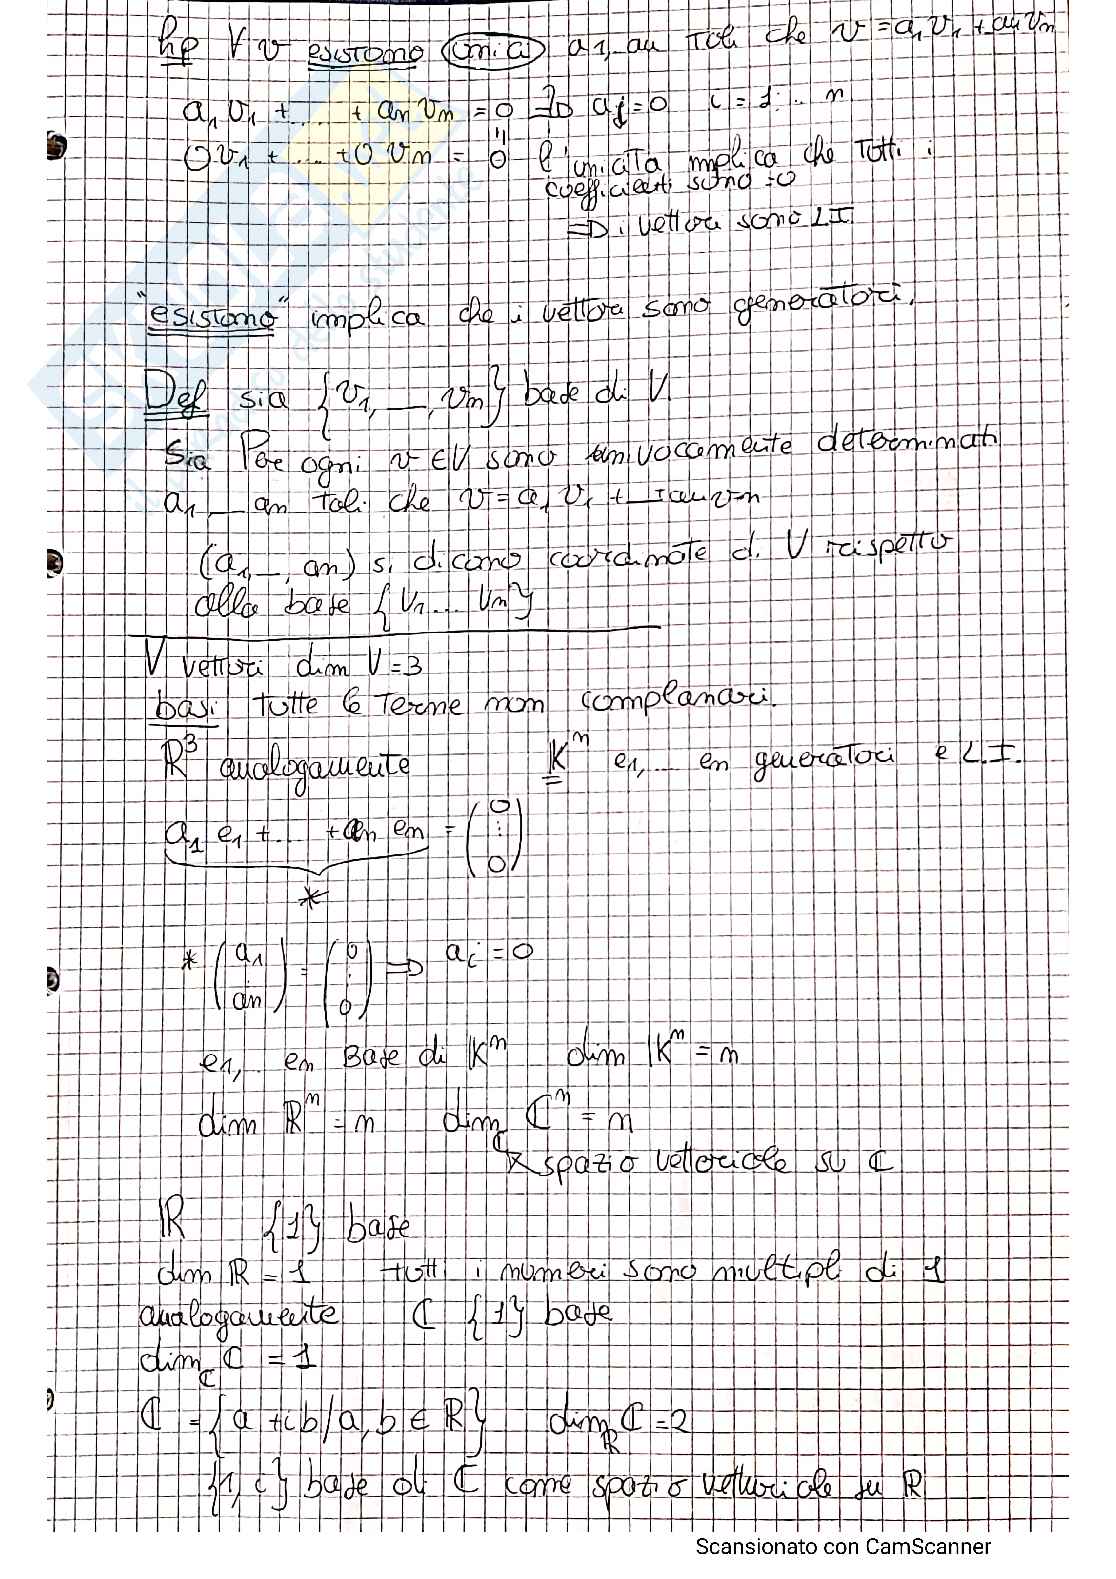 hp ∀ v esistono unici a1,.. an tali che v = a1 v1 + an vn
a1 v1 + .... + an vn = 0 => ai = 0 i = 1 .. n
0 v1 + .... + 0 vn = 0 l'unicità implica che tutti i
coefficienti sono = 0
=> i vettori sono LI
"esistono" implica che i vettori sono generatori.
Def sia {v1, __, vn} base di V
Sia Per ogni v ∈ V sono univocamente determinati
a1, __ an tali che v = a1 v1 + __ + an vn
(a1, __, an) si dicono coordinate di V rispetto
alla base {v1 ... vn}
V vettori dim V = 3
basi tutte le terne non complanari.
ℝ³ analogamente 𝕂ⁿ e1,... en generatori e L.I.
a1 e1 + .... + an en = (0 ⋮ 0)
*
* (a1 an) = (0 ⋮ 0) => ai = 0
e1,.. en Base di 𝕂ⁿ dim 𝕂ⁿ = n
dim ℝⁿ = n dim_ℂ ℂⁿ = n
spazio vettoriale su ℂ
ℝ {1} base
dim ℝ = 1 tutti i numeri sono multipl di 1
analogamente ℂ {1} base
dim_ℂ ℂ = 1
ℂ = {a + ib / a, b ∈ ℝ} dim_ℝ ℂ = 2
{1, i} base di ℂ come spazio vettoriale su ℝ
Scansionato con CamScanner